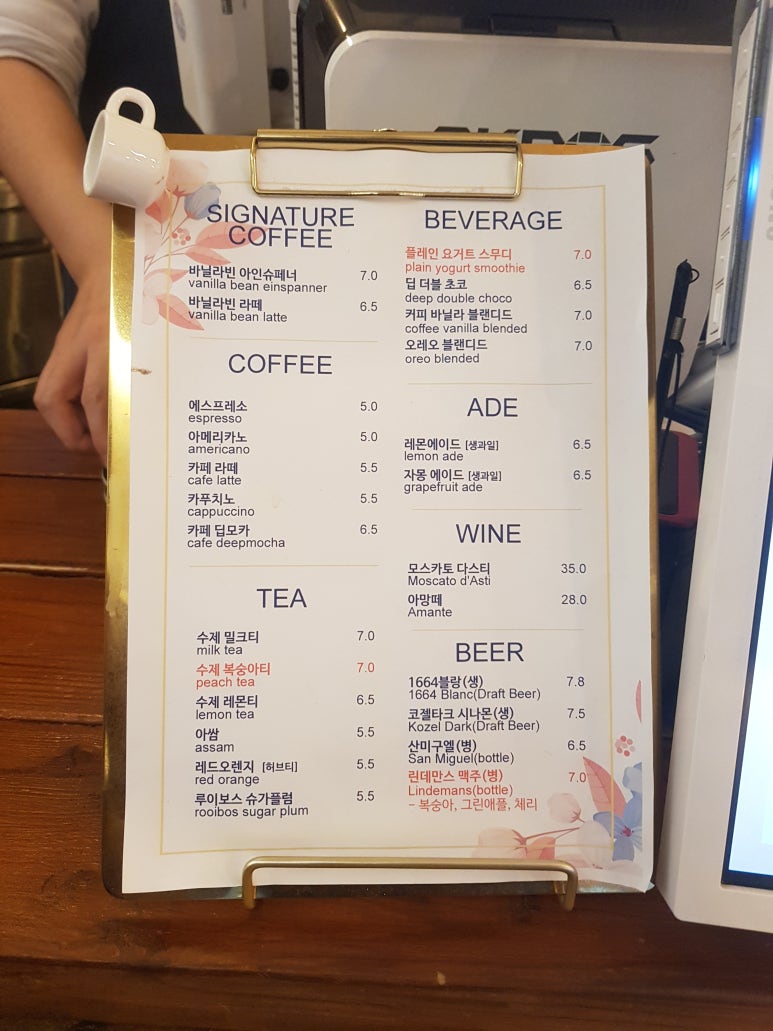 SIGNATURE
COFFEE
바닐라빈 아인슈페너 7.0
vanilla bean einspanner
바닐라빈 라떼 6.5
vanilla bean latte
COFFEE
에스프레소 5.0
espresso
아메리카노 5.0
americano
카페 라떼 5.5
cafe latte
카푸치노 5.5
cappuccino
카페 딥모카 6.5
cafe deepmocha
TEA
수제 밀크티 7.0
milk tea
수제 복숭아티 7.0
peach tea
수제 레몬티 6.5
lemon tea
아쌈 5.5
assam
레드오렌지 [허브티] 5.5
red orange
루이보스 슈가플럼 5.5
rooibos sugar plum
BEVERAGE
플레인 요거트 스무디 7.0
plain yogurt smoothie
딥 더블 초코 6.5
deep double choco
커피 바닐라 블랜디드 7.0
coffee vanilla blended
오레오 블랜디드 7.0
oreo blended
ADE
레몬에이드 [생과일] 6.5
lemon ade
자몽 에이드 [생과일] 6.5
grapefruit ade
WINE
모스카토 다스티 35.0
Moscato d'Asti
아망떼 28.0
Amante
BEER
1664블랑(생) 7.8
1664 Blanc(Draft Beer)
코젤타크 시나몬(생) 7.5
Kozel Dark(Draft Beer)
산미구엘(병) 6.5
San Miguel(bottle)
린데만스 맥주(병) 7.0
Lindemans(bottle)
- 복숭아, 그린애플, 체리